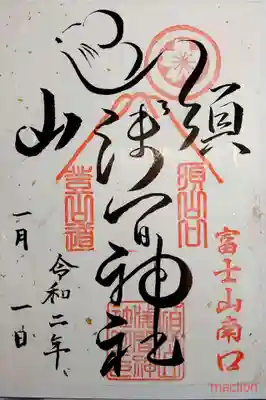 須山
浅間神社
富士山南口
須山口
登山道
令和二年
一月一日
maction